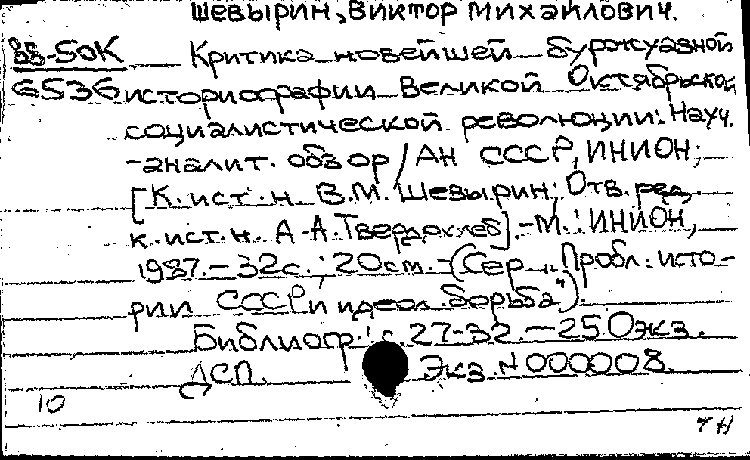 Шевырин, Виктор Михайлович.
88-50К Критика новейшей буржуазной
6536 историографии Великой Октябрьской
социалистической революции: Науч.
-аналит. обзор / АН СССР, ИНИОН;
[К. ист. н. В.М. Шевырин; Отв. ред.
к. ист. н. А.А. Твердохлеб]. - М.: ИНИОН,
1987. - 32с.; 20см. - (Сер. "Пробл. исто-
рии СССР и идеол. борьба").
Библиогр.: с. 27-32. - 250экз.
ДСП. Экз. N 000008.
10